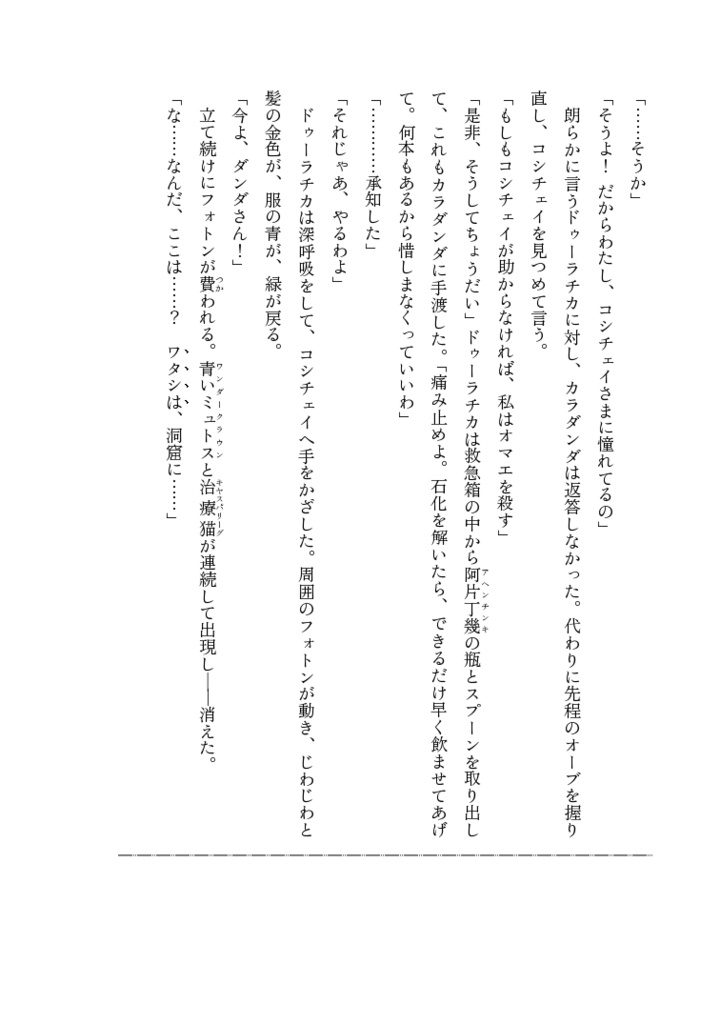 「……そうか」
「そうよ！　だからわたし、コシチェイさまに憧れてるの」
　朗らかに言うドゥーラチカに対し、カラダンダは返答しなかった。代わりに先程のオーブを握り
直し、コシチェイを見つめて言う。
「もしもコシチェイが助からなければ、私はオマエを殺す」
「是非、そうしてちょうだい」ドゥーラチカは救急箱の中から阿片丁幾の瓶とスプーンを取り出し
アヘンチンキ
て、これもカラダンダに手渡した。「痛み止めよ。石化を解いたら、できるだけ早く飲ませてあげ
て。何本もあるから惜しまなくっていいわ」
「…………承知した」
「それじゃあ、やるわよ」
　ドゥーラチカは深呼吸をして、コシチェイへ手をかざした。周囲のフォトンが動き、じわじわと
髪の金色が、服の青が、緑が戻る。
「今よ、ダンダさん！」
　立て続けにフォトンが費われる。青いミュトスと治療猫が連続して出現し――消えた。
つか
ワンダークラウン
キャスパリーグ
「な……なんだ、ここは……？　ワタシは、洞窟に……」